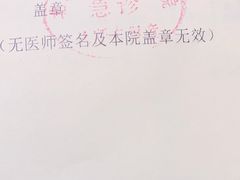 盖章
急诊
（无医师签名及本院盖章无效）